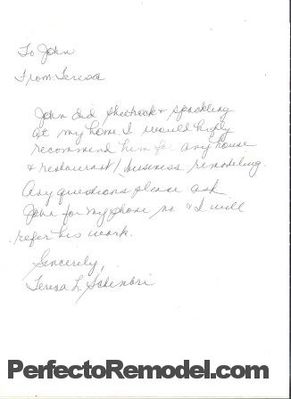 To John
From Teresa
John did Sheetrock + spackling
at my home. I would highly
recommend him for any house
+ restaurant / business remodeling.
Any questions please ask
John for my phone no + I will
refer his work.
Sincerely,
Teresa L.
PerfectoRemodel.com